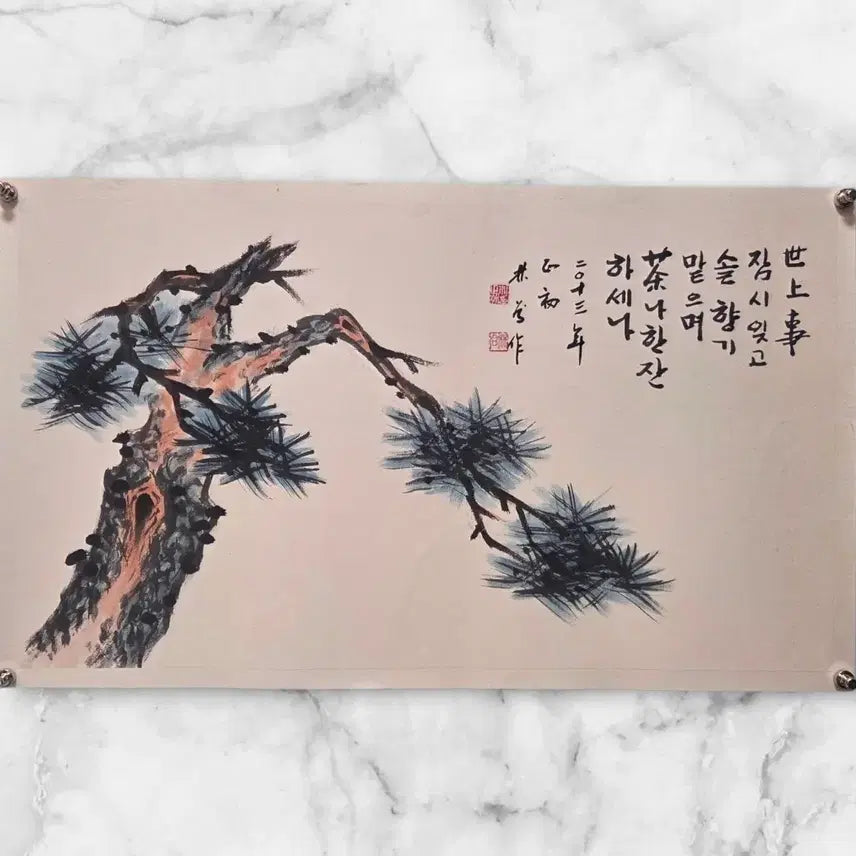 世上事
잠시잊고
솔향기
맡으며
茶나한잔
하세나
二〇十三年
正初
作